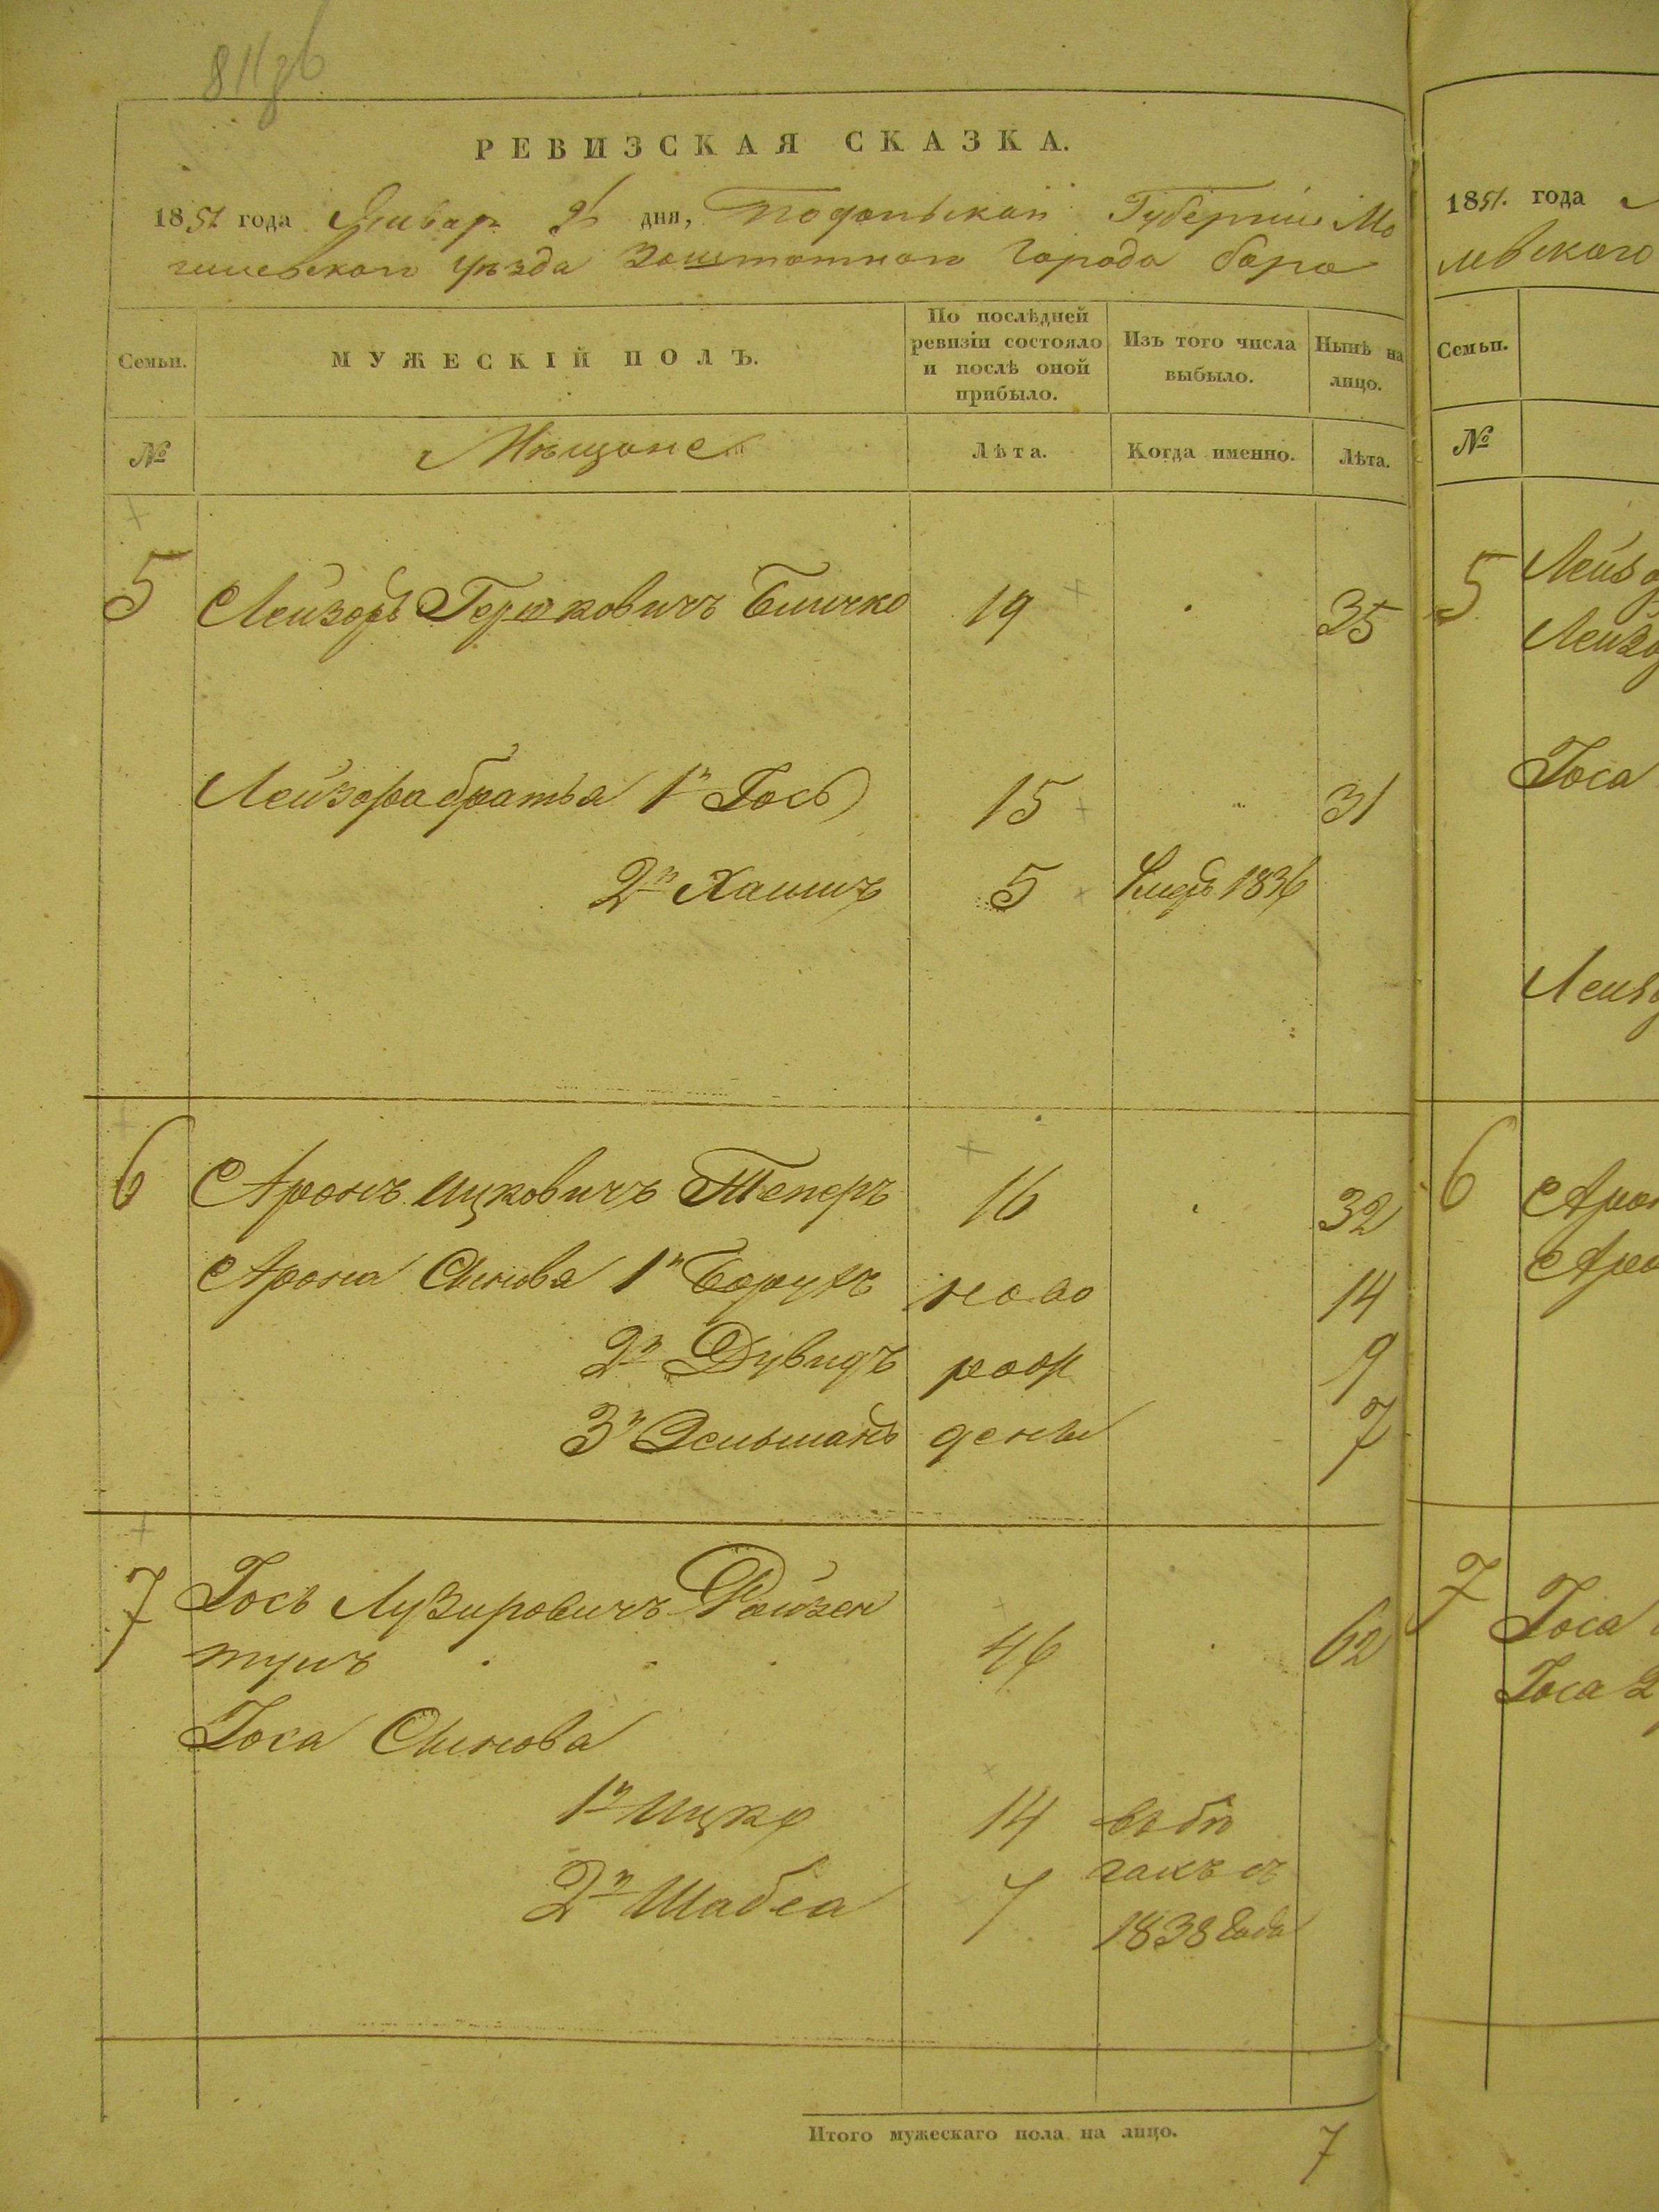 811об
РЕВИЗСКАЯ СКАЗКА.
1851 года Январ 26 дня, Подольской Губернии Мо
гилевского уѣзда Заштатнаго Города Бара
Семьи.
МУЖЕСКІЙ ПОЛЪ.
По послѣдней
ревизіи состояло
и послѣ оной
прибыло.
Изъ того числа
выбыло.
Нынѣ на
лицо.
№
Мѣщане
Лѣта.
Когда именно.
Лѣта.
5 Лейзоръ Гершковичъ Бличко 19 35
Лейзора братья 1й Іось 15 31
2й Хаимъ 5 1836
6 Аронъ Ицковичъ Теперъ 16 32
Арона Сыновья 1й Борухъ ново 14
2й Дувидъ рож 9
3й дены 7
7 Іось Лузировичъ Райзен
46 62
Іоса Сыновья
1й Ицко 14 въ бѣ
2й Шабса 7 гахъ съ
1838 года
Итого мужескаго пола на лицо. 7
1851. года
левского
Семьи.
№
5 Лейзо
Лейзо
Іоса
Лейз
6 Арон
Аро
7 Іоса
Іоса 2